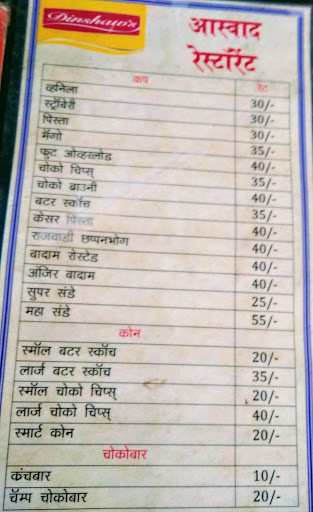 Dinshaw's
आस्वाद
रेस्टॉरेंट
कप रेट
व्हनिला 30/-
स्ट्रॉबेरी 30/-
पिस्ता 30/-
मँगो 35/-
फ्रुट ओव्हरलोड 40/-
चोको चिप्स् 35/-
चोको ब्राउनी 40/-
बटर स्कॉच 35/-
केसर पिस्ता 40/-
राजवाडी छप्पनभोग 40/-
बादाम रोस्टेड 40/-
अंजिर बादाम 40/-
सुपर संडे 25/-
महा संडे 55/-
कोन
स्मॉल बटर स्कॉच 20/-
लार्ज बटर स्कॉच 35/-
स्मॉल चोको चिप्स् 20/-
लार्ज चोको चिप्स् 40/-
स्मार्ट कोन 20/-
चोकोबार
कंचबार 10/-
चॅम्प चोकोबार 20/-